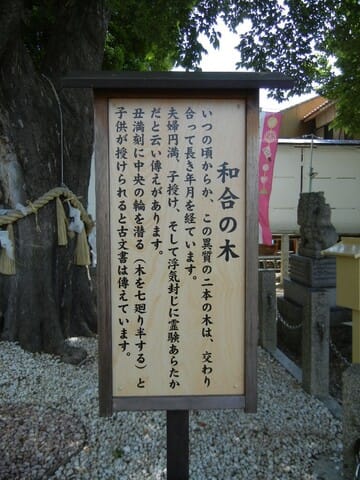 和合の木
いつの頃からか、この異質の二本の木は、交わり
合って長き年月を経ています。
夫婦円満、子授け、そして浮気封じに霊験あらたか
だと云い傳えがあります。
丑満刻に中央の輪を潜る（木を七廻り半する）と
子供が授けられると古文書は伝えています。